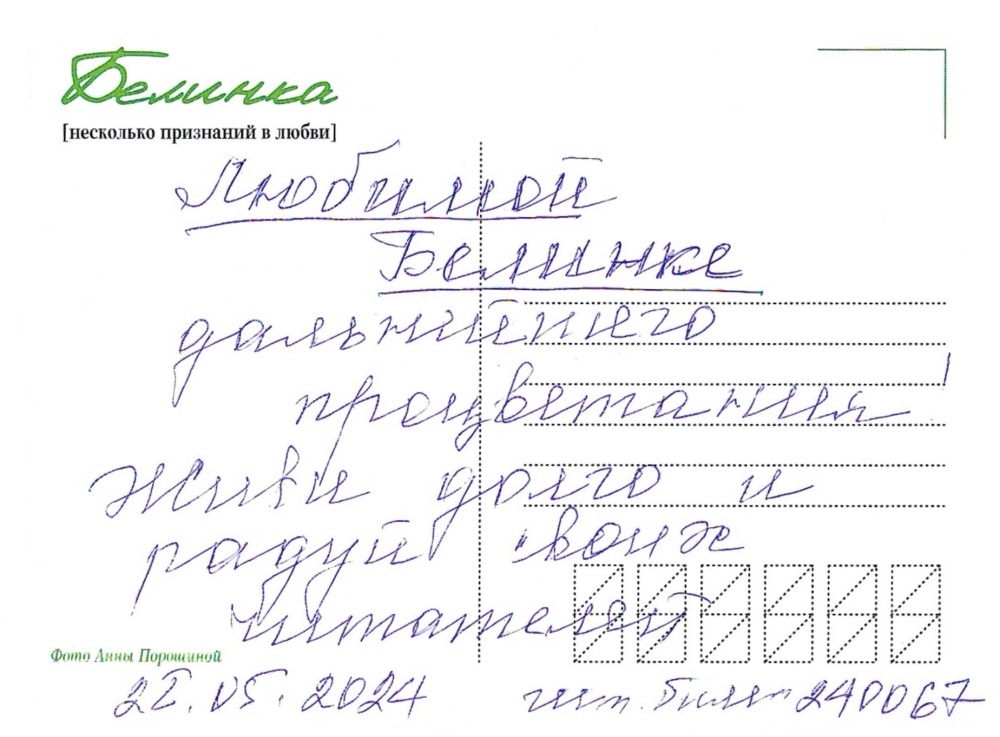 Белинка
[несколько признаний в любви]
Любимой
Белинке
дальнейшего
процветания!
Живи долго и
радуй своих
читателей
Фото Анны Порошиной
25.05.2024 чит. билет 240067